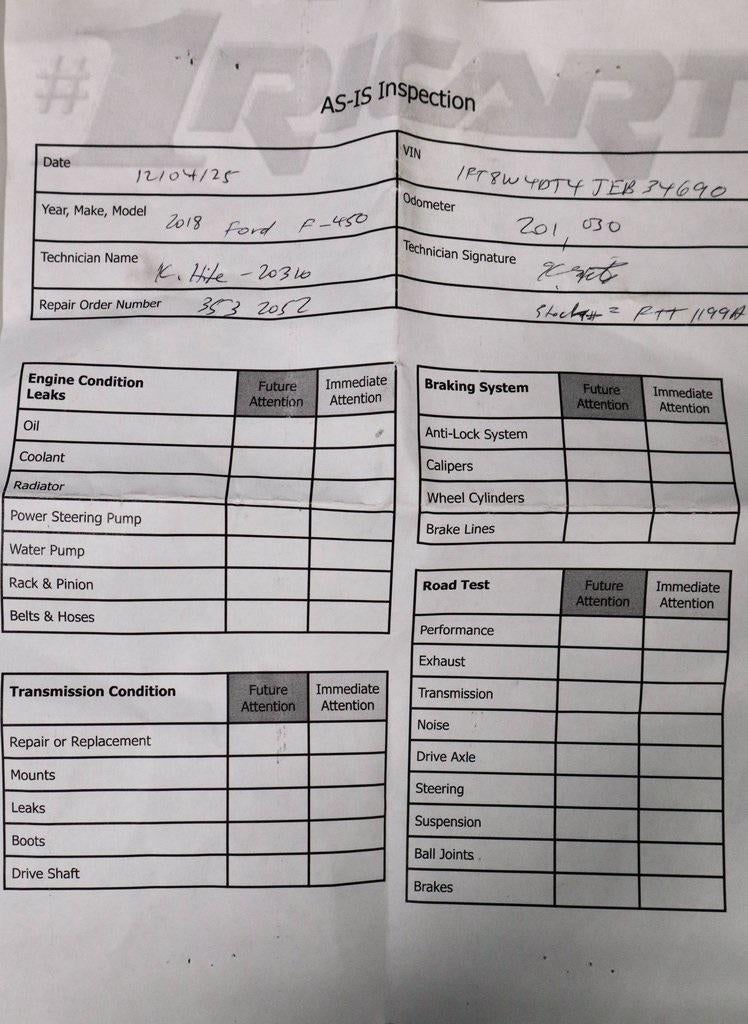 #1 RICART
AS-IS Inspection
Date 12/04/25
VIN 1FT8W4DT4JEB34690
Year, Make, Model 2018 Ford F-450
Odometer 201,030
Technician Name K. Hite - 20310
Technician Signature
Repair Order Number 353 2052
Stock# = RTT 1199A
Engine Condition Leaks Future Attention Immediate Attention
Oil
Coolant
Radiator
Power Steering Pump
Water Pump
Rack & Pinion
Belts & Hoses
Transmission Condition Future Attention Immediate Attention
Repair or Replacement
Mounts
Leaks
Boots
Drive Shaft
Braking System Future Attention Immediate Attention
Anti-Lock System
Calipers
Wheel Cylinders
Brake Lines
Road Test Future Attention Immediate Attention
Performance
Exhaust
Transmission
Noise
Drive Axle
Steering
Suspension
Ball Joints
Brakes